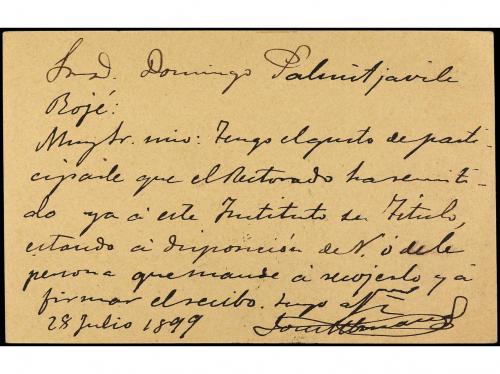 Sr. D. Domingo Palmitjavile
Rojé:
Muy Sr. mio: Tengo el gusto de parti-
ciparle que el Rectorado ha remiti-
do ya á este Instituto su Título,
estando á disposición de V. ó de la
persona que mande á recojerlo y á
firmar el recibo. Suyo
28 Julio 1899